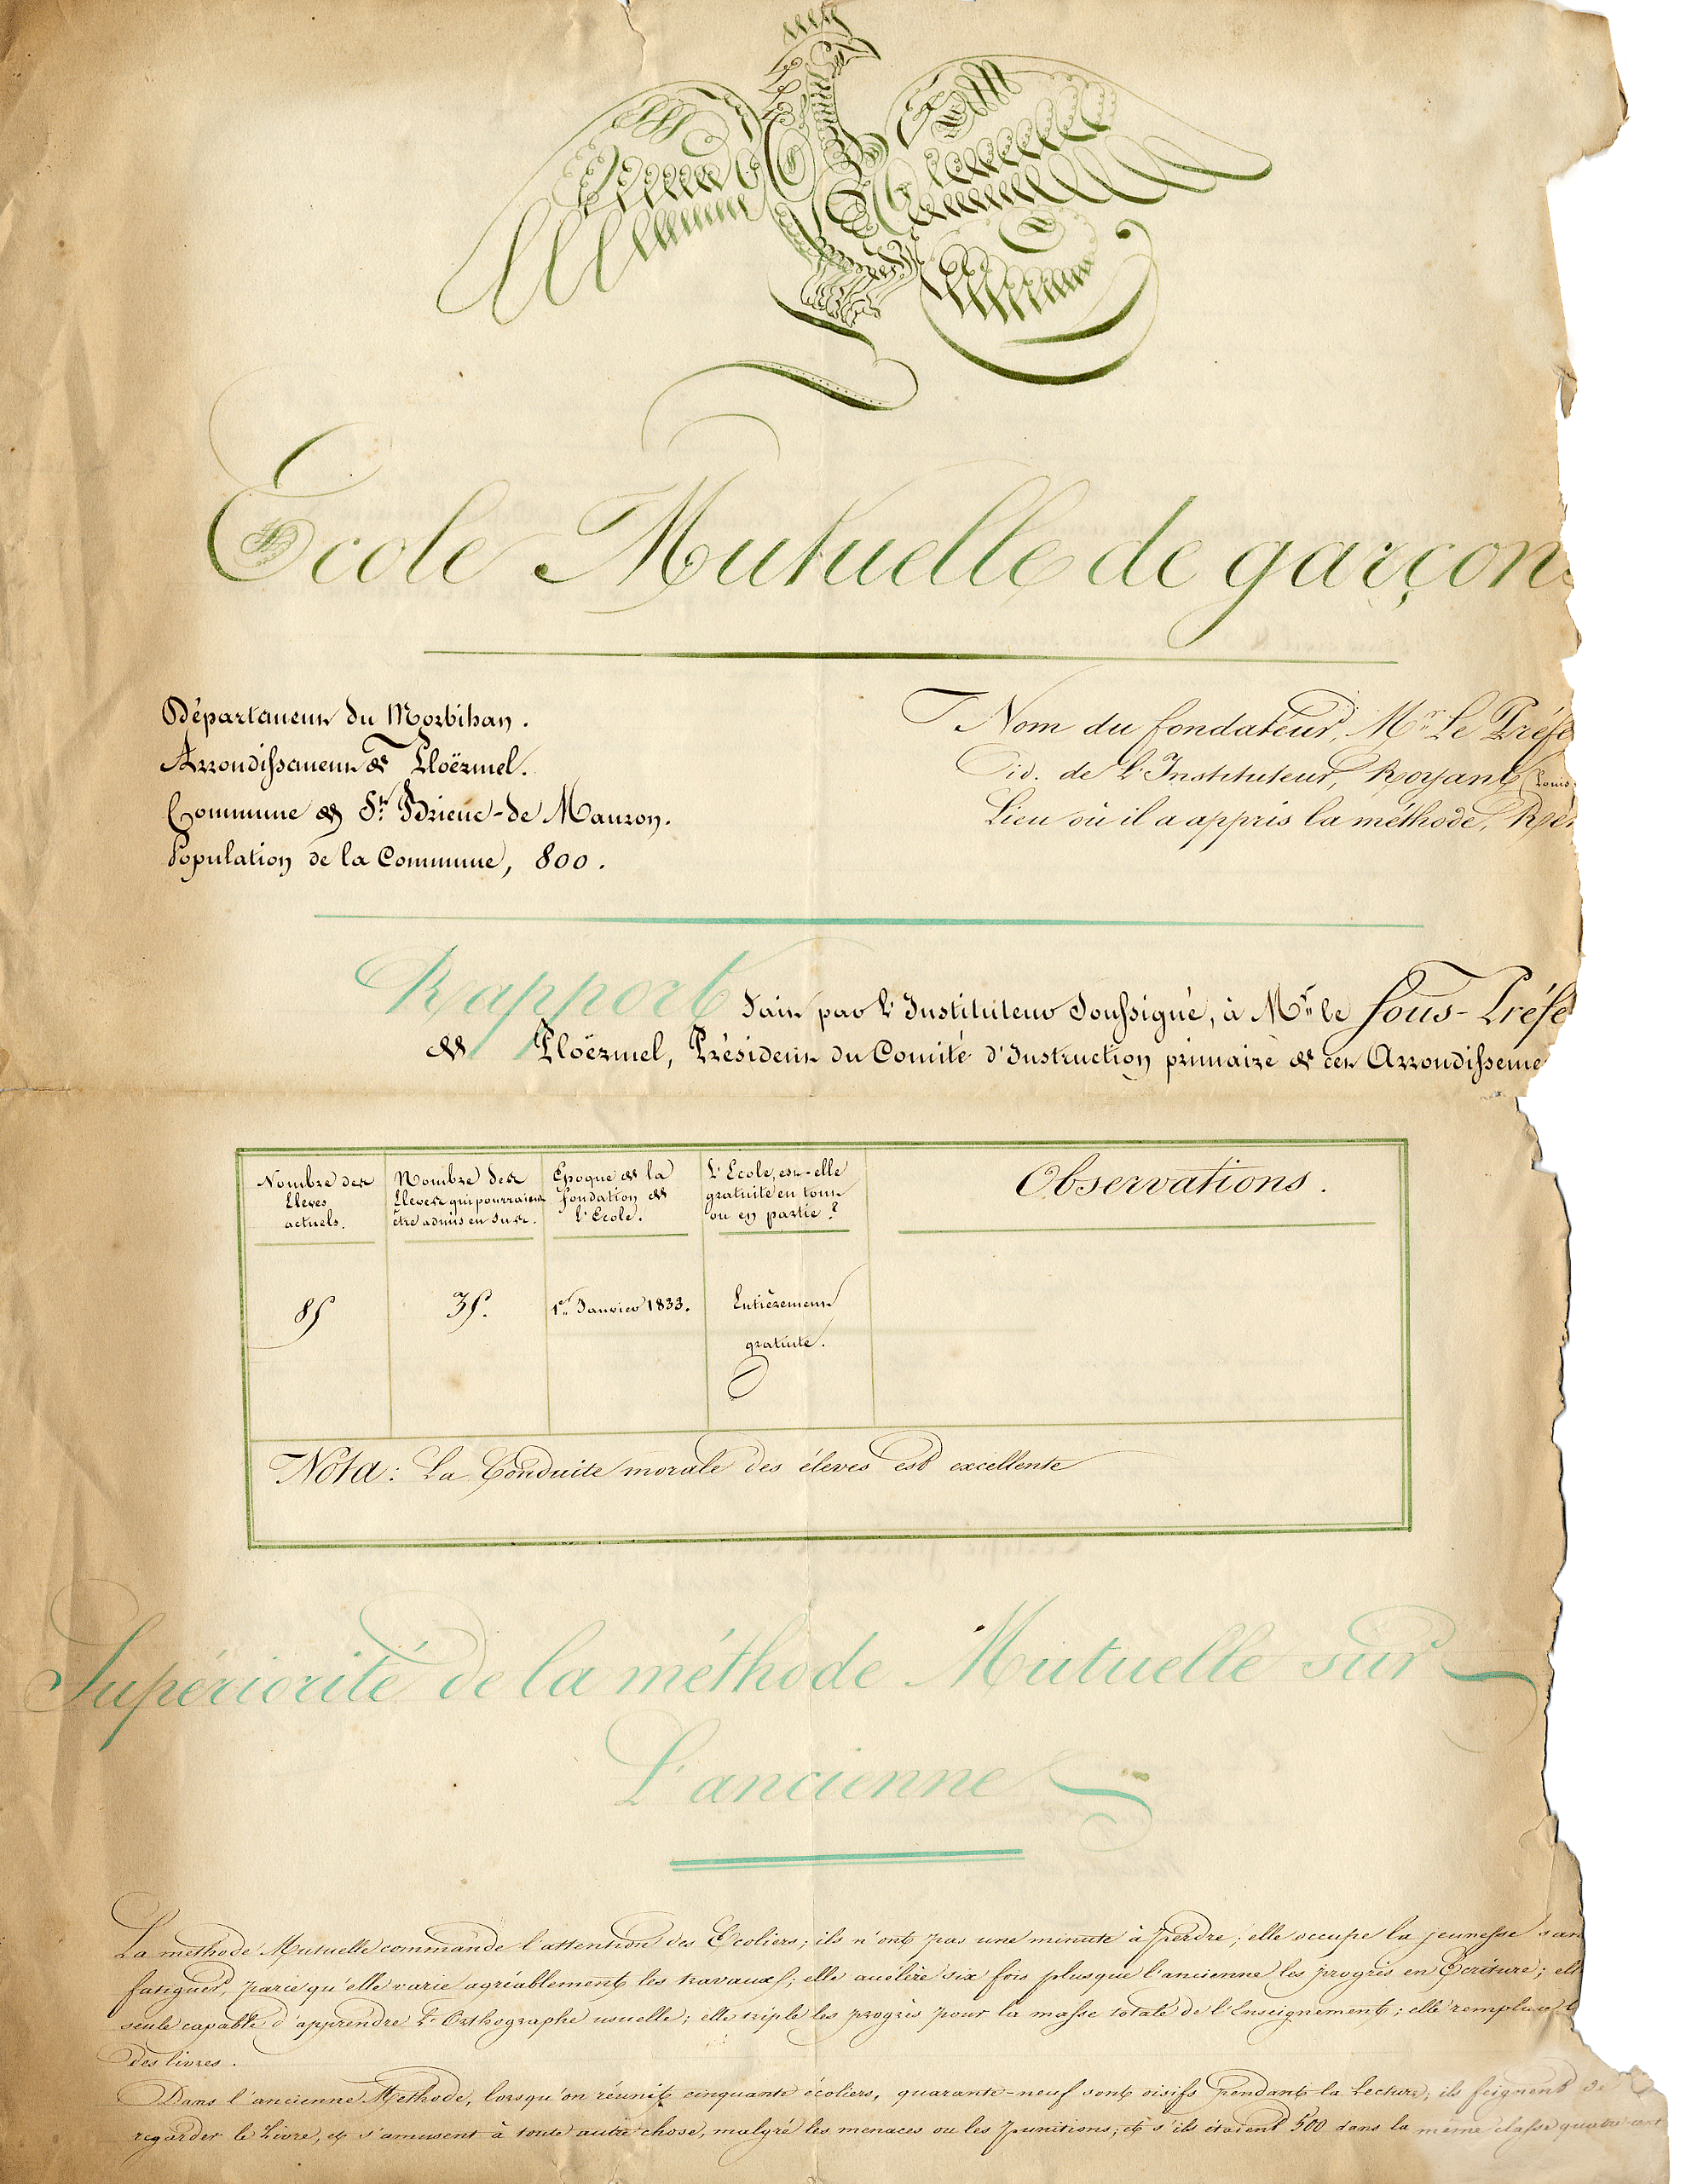 École Mutuelle de garçons
Département du Morbihan.
Arrondissement de Ploërmel.
Commune de St. Brieuc-de Mauron.
Population de la Commune, 800.
Nom du fondateur, Mr. Le Préfe
id. de L'Instituteur, Royant (Louis)
Lieu où il a appris la méthode,
Rapport fait par l'Instituteur Soussigné, à Mr. le Sous-Préfe
de Ploërmel, Président du Comité d'Instruction primaire de cet Arrondisseme
Nombre des
Elèves
actuels.
Nombre des
Elèves qui pourraient
être admis en sus.
Epoque de la
fondation de
l'Ecole.
L'Ecole, est-elle
gratuite en tout
ou en partie ?
Observations.
85
35.
1er Janvier 1833.
Entièrement
gratuite.
Nota: La Conduite morale des élèves est excellente
Supériorité de la méthode Mutuelle sur
L'ancienne
La methode Mutuelle commande l'attention des Ecoliers; ils n'ont pas une minute à perdre; elle occupe la jeunesse san
fatiguer, parce qu'elle varie agréablement les travaux; elle accélère six fois plus que l'ancienne les progrès en Ecriture; el
seule capable d'apprendre l'Orthographe usuelle; elle triple les progrès pour la masse totale de l'Enseignement; elle remplace
des livres.
Dans l'ancienne Methode, lorsqu'on réunit cinquante écoliers, quarante-neuf sont oisifs pendant la Lecture; ils feignent de
regarder le Livre, et s'amusent à toute autre chose, malgré les menaces ou les punitions; et s'ils étaient 500 dans la même classe quatre cent